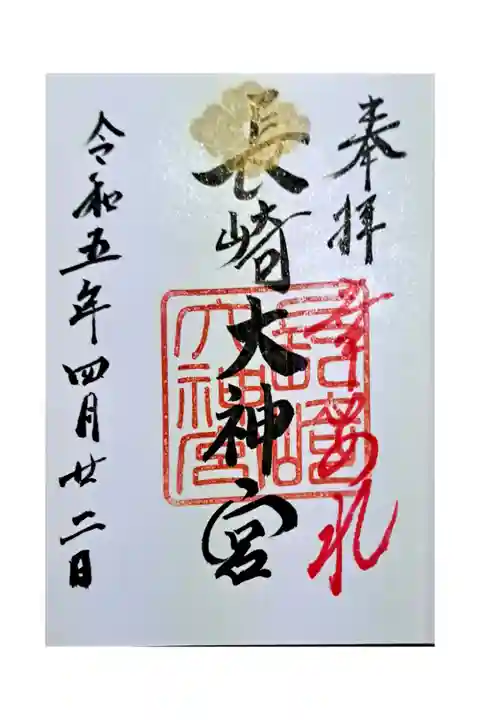 奉拝
幸あれ
長崎大神宮
長崎
大神宮
令和五年四月廿二日